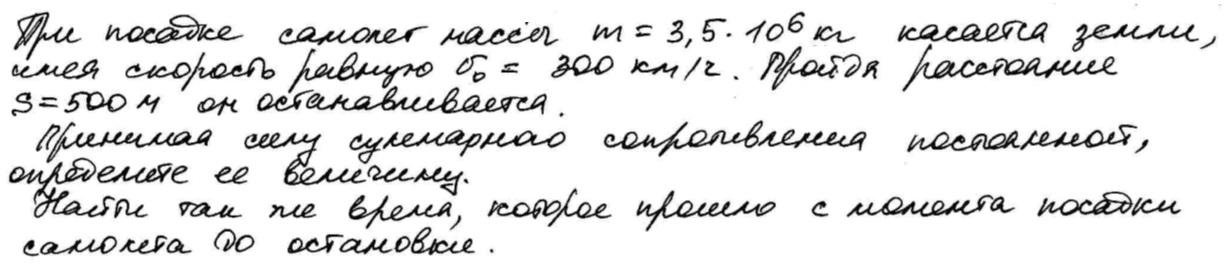 При посадке самолет массы m = 3,5 · 10⁶ кг касается земли,
имея скорость равную v₀ = 300 км/ч. Пройдя расстояние
S = 500 м он останавливается.
Принимая силу суммарного сопротивления постоянной,
определите ее величину.
Найти так же время, которое прошло с момента посадки
самолета до остановки.